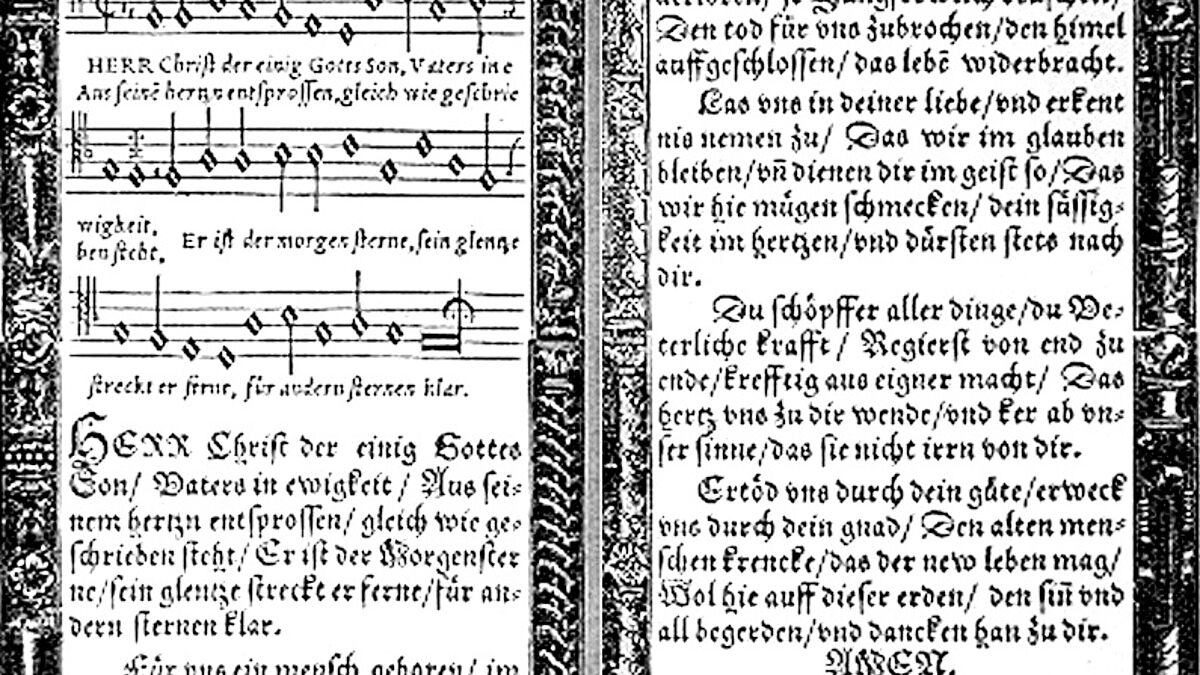 HERR Christ der einig Gotts Son, Vaters in e
Aus seinē hertzn entsprossen, gleich wie geschrie
wigkeit,
ben steht,
Er ist der morgen sterne, sein glentze
streckt er ferne, für andern sternen klar.
HERR Christ der einig Gottes
Son/ Vaters in ewigkeit/ Aus sei-
nem hertzn entsprossen/ gleich wie ge-
schrieben steht/ Er ist der Morgenster
ne/sein glentze streckt er ferne/für an-
dern sternen klar.
Für vns ein mensch geboren/ im
Den tod für vns zubrochen/den himel
auffgeschlossen/ das lebē widerbracht.
Las vns in deiner liebe/vnd erkent
nis nemen zu/ Das wir im glauben
bleiben/vñ dienen dir im geist so/Das
wir hie mügen schmecken/ dein süssig-
keit im hertzen/vnd dürsten stets nach
dir.
Du schöpffer aller dinge/du Ve-
terliche krafft/ Regierst von end zu
ende/krefftig aus eigner macht/ Das
hertz vns zu dir wende/vnd ker ab vn-
ser sinne/das sie nicht irrn von dir.
Ertöd vns durch dein güte/erweck
vns durch dein gnad/ Den alten men-
schen krencke/das der new leben mag/
Wol hie auff dieser erden/ den siñ vnd
all begerden/vnd dancken han zu dir.
AMEN.